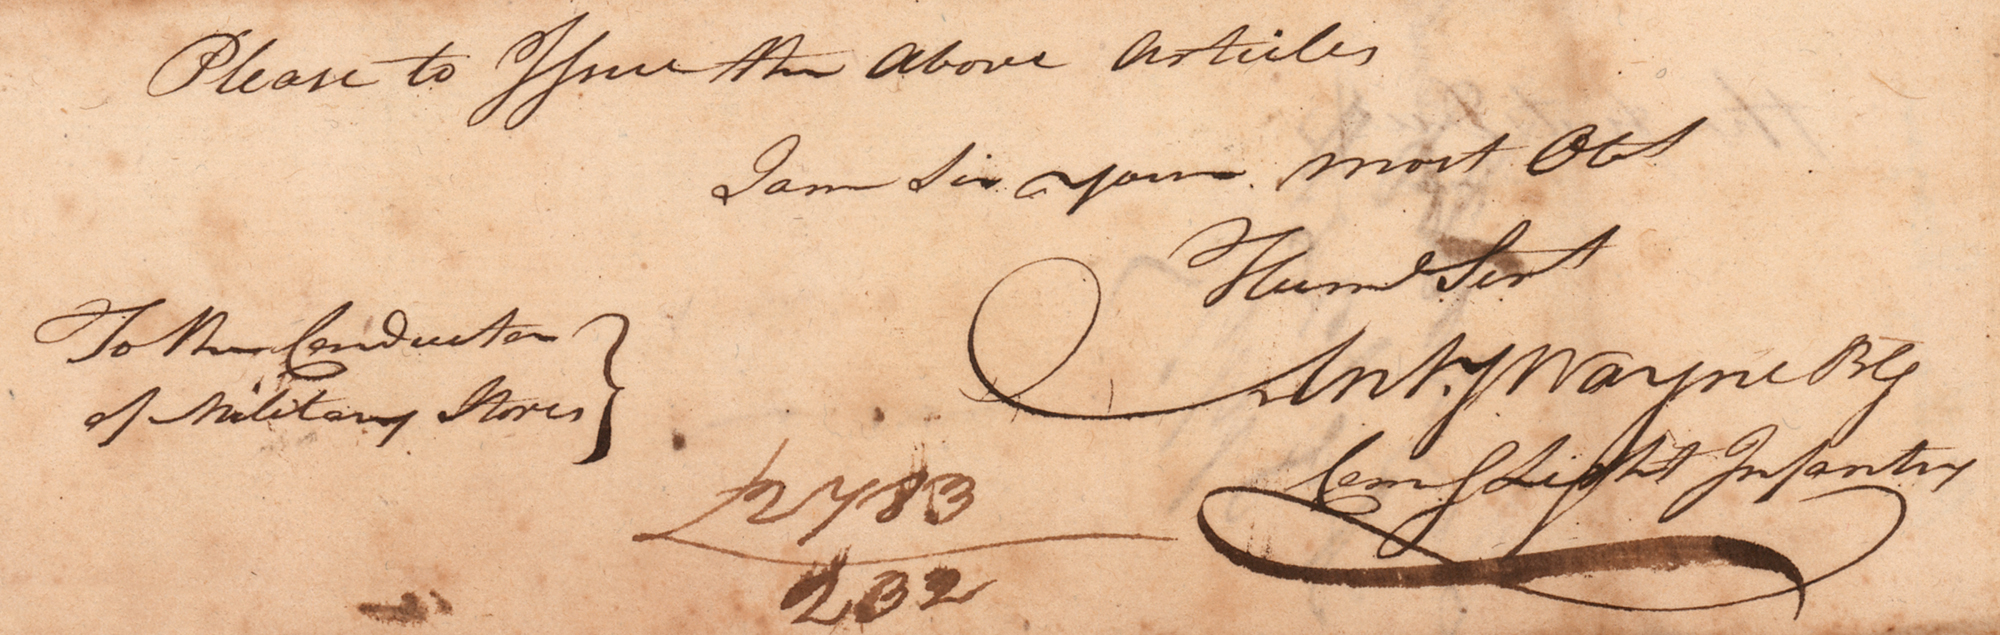 Please to Issue the above articles
I am Sir your most Obt
Huml Sert
Anty Wayne BG
Comg Light Infantry
To the Conductor
of Military Stores
2783
232